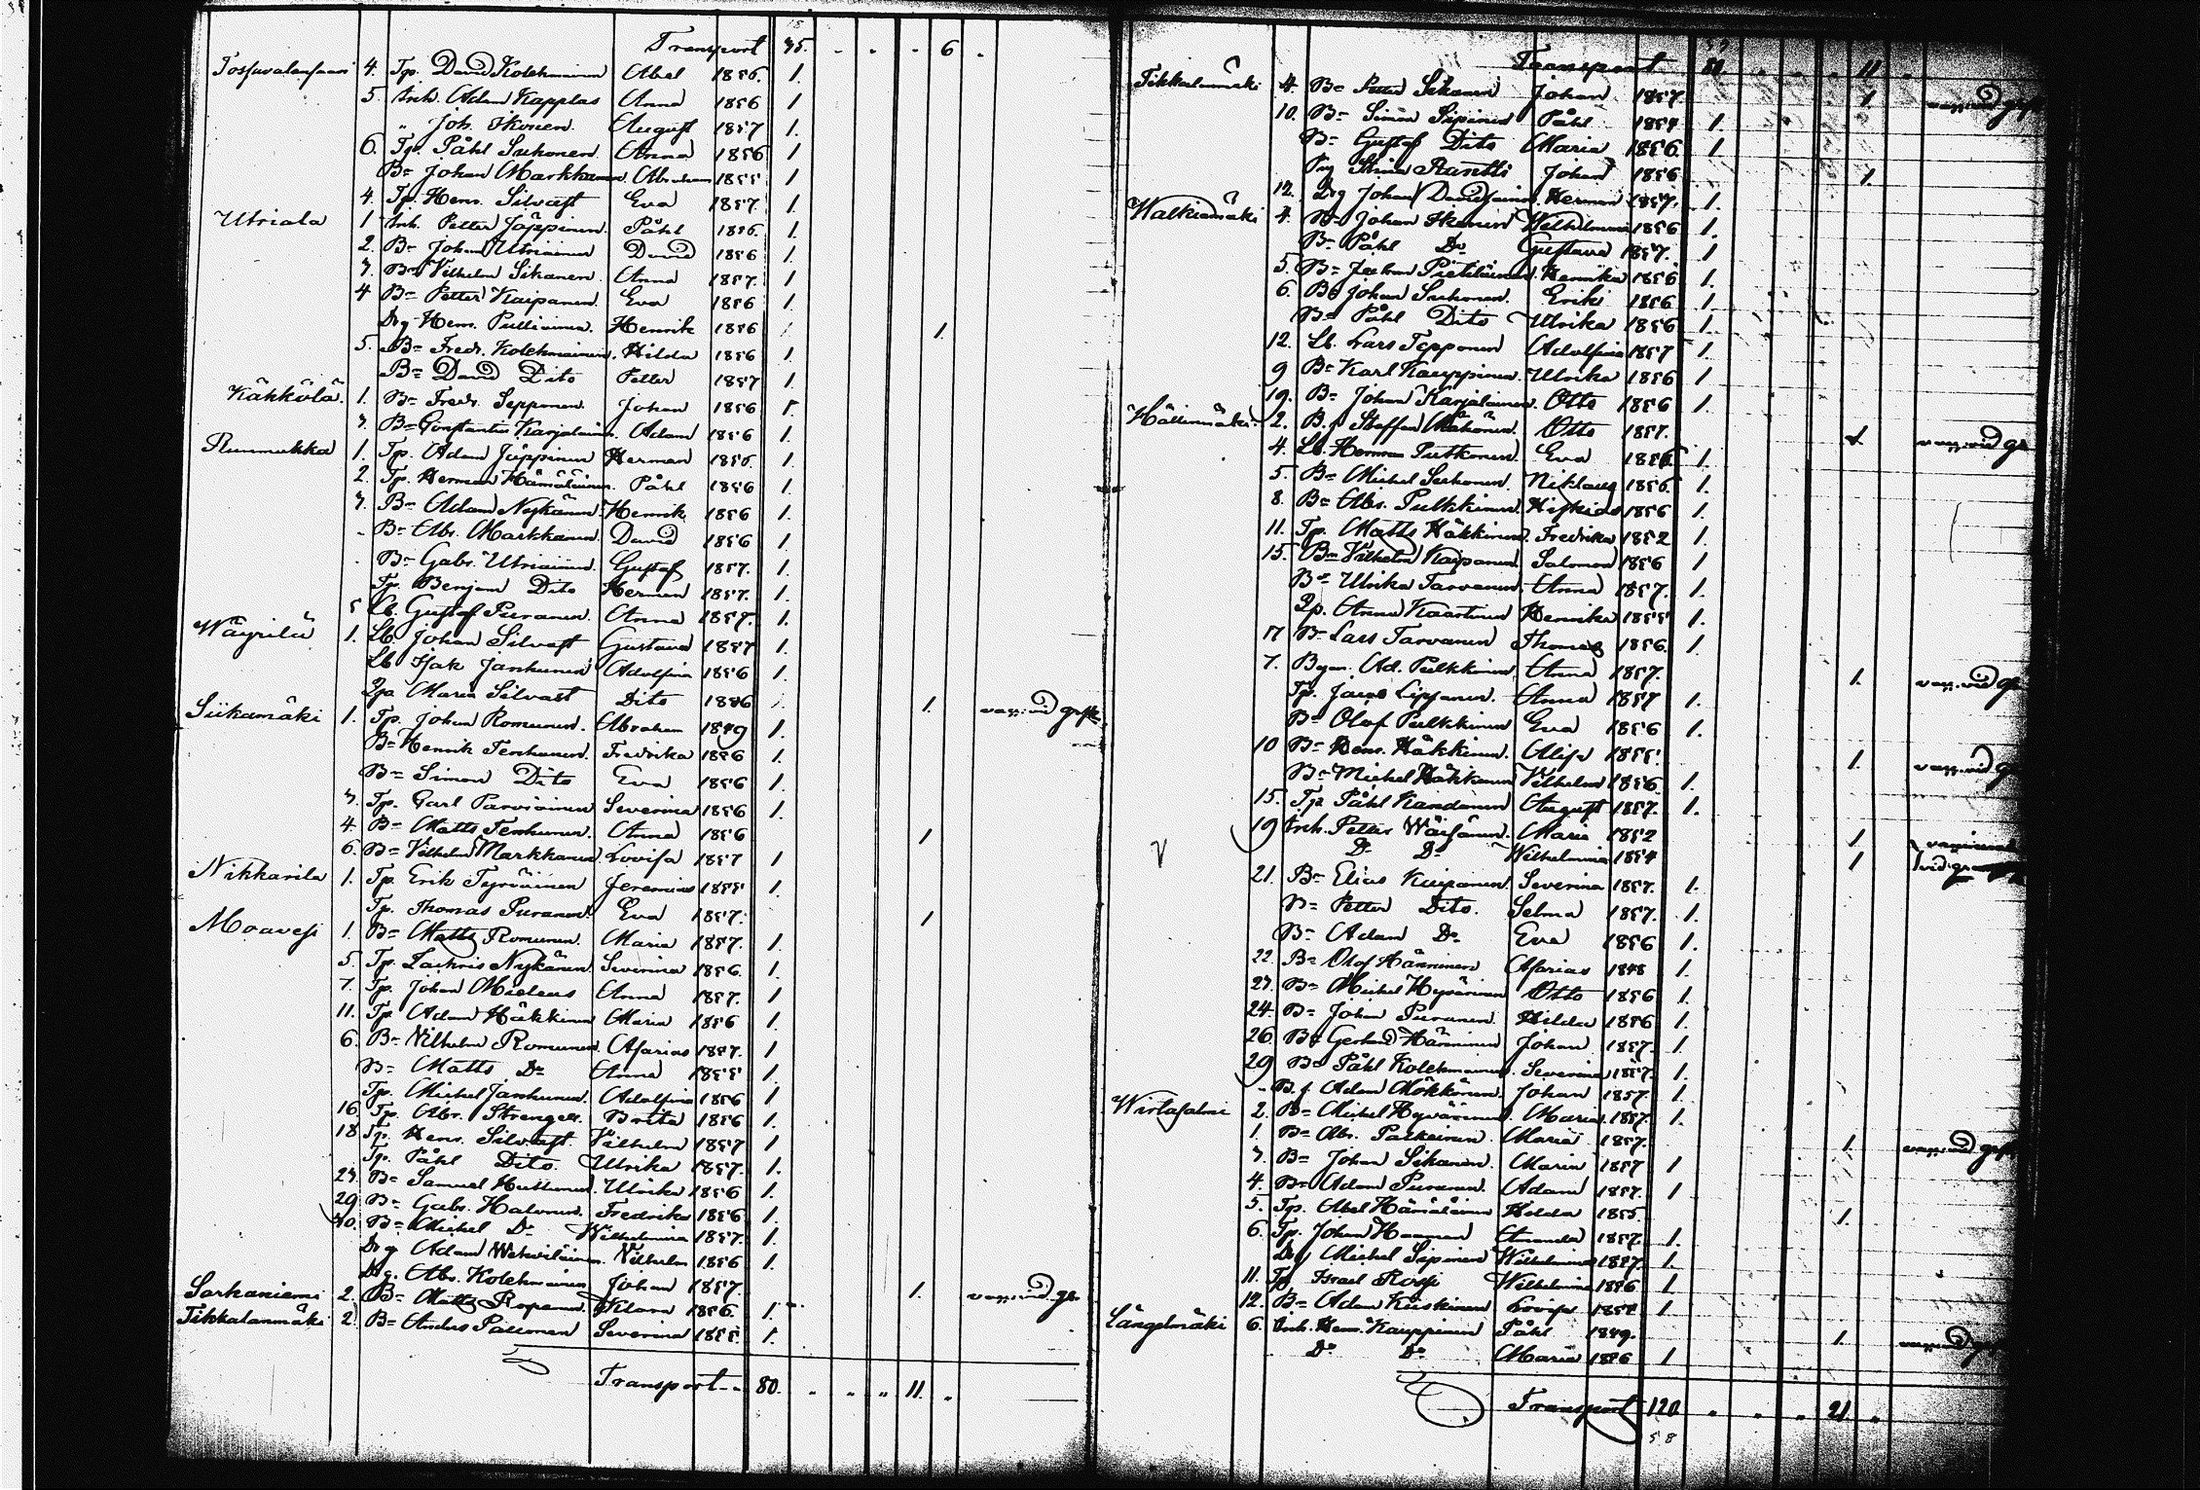 Transport 35. " " " 6 "
4. Tp. David Kolehmainen Abel 1856. 1.
5. Inh. Adam Kapplas Anna 1856 1
" Joh. Ikonen. August 1857 1.
6. Tp. Påhl Suhonen. Anna 1856 1
Bn Johan Markkanen. Abraham 1855 1
4. Tp. Henr. Silvast Eva 1857. 1.
Utriala 1 Inh. Petter Jäppinen. Påhl 1856. 1.
2. Bn Johan Utriainen David 1856 1
3. Bn Vilhelm Sikanen. Anna 1857. 1
4 Bn Petter Kaipanen. Eva 1856 1
Drg Henr. Pulliainen. Henrik 1856 1.
5. Bn Fredr. Kolehmainen. Hilda 1856 1.
Bn David Dito Petter 1857 1.
Kähkölä. 1. Bn Fredr. Sepponen. Johan 1856 1.
3. Bn Constantin Karjalain. Adam 1856 1.
Runmukka 1. Tp. Adam Jäppinen Herman 1856. 1.
2. Tp. Herman Hämäläinen. Påhl 1856 1.
3. Bn Adam Nykänen Henrik 1856 1.
Bn Abr. Markkanen. David 1856 1.
Bn Gabr. Utriainen. Gustaf 1857. 1.
Tp. Benjam Dito Herman 1857. 1.
5 Lb. Gustaf Puranen. Anna 1857. 1.
Wäyrilä 1. Lb. Johan Silvast Gustava 1857 1.
Lb Isak Janhunen Adolfina 1856 1.
Maria Silvast Dito 1856 1.
Siikamäki 1. Tp. Johan Romunen. Abraham 1849 1.
Bn Henrik Tenhunen. Fredrika 1856 1.
Bn Simon Dito Eva 1856 1.
3. Tp. Carl Parviainen Severina 1856 1.
4. Bn Matts Tenhunen. Anna 1856 1
6. Bn Vilhelm Markkanen. Lovisa 1857 1
Nikkarila 1. Tp. Erik Tyrväinen Jeremias 1855 1.
Tp. Thomas Puranen. Eva 1857. 1
Moavesi 1. Bn Matts Romunen. Maria 1857. 1.
5. Tp. Zachris Nykänen. Severina 1856. 1.
7. Tp. Johan Mielens Anna 1857. 1
11. Tp. Adam Häkkinen Maria 1856 1.
6. Bn Vilhelm Romunen. Asarias 1857. 1
Bn Matts Do Anna 1855 1.
Tp. Michel Janhunen. Adolfina 1856 1
16 Tp. Abr. Strengell. Brita 1856 1.
18 Tp. Henr. Silvast. Vilhelm 1857 1
Tp. Påhl Dito. Ulrika 1857. 1.
23. Bn Samuel Huttunen. Ulrika 1856 1.
29 Bn Gabr. Halonen. Fredrika 1856 1.
30. Bn Michel Do Wilhelmina 1857. 1.
Drg Adam Vilhelm 1856 1.
Drg. Abr. Kolehmainen Johan 1857. 1.
Sarkaniemi 2. Bn Matts Roponen. Klara 1856. 1.
Tikkalanmäki 2 Bn Anders Pallonen Severina 1855. 1.
Transport 80. " " " 11. "
Transport 80. " " " 11 "
Tikkalanmäki 4. Bn Petter Sikanen Johan 1857. 1.
10. Bn Simon Sipinen Påhl 1854 1.
Bn Gustaf Dito Maria 1856. 1
Pig Stina Rantti Johan 1856 1.
12. Drg Johan Davidsainen. Herman 1857. 1.
Walkiamäki 4. Bn Johan Ikonen Wilhelmina 1856 1.
Bn Påhl Do Gustava 1857. 1
5. Bn Joehan Pietiläinen Henrika 1856 1.
6. Bn Johan Suhonen. Erik 1856 1.
Bn Påhl Dito Ulrika 1856 1.
12. Lb. Lars Tepponen Adolfina 1857 1.
9 Bn Karl Kauppinen. Ulrika 1856 1
19. Bn Johan Karjalainen. Otto 1856 1.
Hällinmäki. 2. B.f Staffan Mähönen. Otto 1857. 1.
4. Lb. Herman Putkonen. Eva 1856. 1.
5. Bn Michel Suhonen. Niklaus 1856. 1.
8. Bn Abr. Pulkkinen. Hiskias 1856 1.
11. Tp. Matts Häkkinen. Fredrika 1852 1.
15. Bn Vilhelm Kaipanen. Salomon 1856 1
Bn Ulrika Tarvanen. Anna 1857. 1.
Anna Kaartinen Henrika 1855 1.
17 Bn Lars Tarvanen Thomas 1856. 1.
7. Ad. Pulkkinen. Anna 1857. 1.
Tp. Jacob Lipsanen. Anna 1857 1.
Bn Olof Pulkkinen Eva 1856 1.
10 Bn Henr. Häkkinen. Alisa 1855. 1.
Bn Michel Häkkinen Vilhelm 1856. 1.
15. Tp. Påhl Kandanen August 1857. 1.
19 Inh. Petter Wäisänen. Maria 1852 1
Do Do Wilhelmina 1854 1
21. Bn Elias Kaipanen. Severina 1857. 1.
Bn Petter Dito. Selma 1857. 1.
Bn Adam Do Eva 1856 1.
22. Bn Olof Hänninen Asarias 1848 1.
23. Bn Michel Hyvärinen Otto 1856 1.
24. Bn Johan Puranen. Hilda 1856 1.
26. Bn Gerhard Hänninen Johan 1857. 1.
29 Bn Påhl Kolehmainen. Severina 1857. 1.
B.f. Adam Mökkönen. Johan 1857. 1.
Wirtasalmi 2. Bn Michel Hyvärinen. Maria 1857. 1.
1. Bn Abr. Parkkinen. Maria 1857. 1.
3. Bn Johan Sikanen. Maria 1857 1
4. Bn Adam Puranen. Adam 1857. 1
5. Tp. Abel Hämäläinen Hilda 1855. 1.
6. Tp. Johan Hannen Amanda 1857. 1.
Drg Michel Sipinen Wilhelmina 1857. 1.
11. Tp. Israel Rossi Wilhelmina 1856 1
12. Bn Adam Kiiskinen Lovisa 1 1
Längelmäki 6. Inh. Henr. Kauppinen Påhl 1849. 1.
Do Do Maria 1856 1
Transport 120 " " " 21. "
58